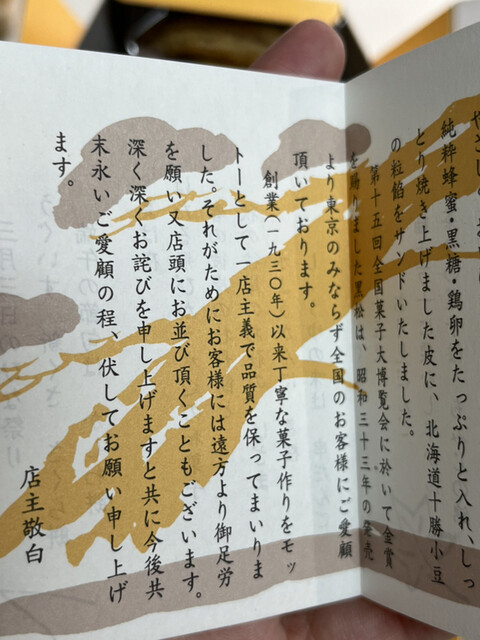 純粋蜂蜜・黒糖・鶏卵をたっぷりと入れ、しっ
とり焼き上げました皮に、北海道十勝小豆
の粒餡をサンドいたしました。
第十五回全国菓子大博覧会に於いて金賞
を賜りました黒松は、昭和三十三年の発売
より東京のみならず全国のお客様にご愛顧
頂いております。
創業(一九三〇年)以来丁寧な菓子作りをモッ
トーとして一店主義で品質を保ってまいりま
した。それがためにお客様には遠方より御足労
を願い又店頭にお並び頂くこともございます。
深く深くお詫びを申し上げますと共に今後共
末永いご愛顧の程、伏してお願い申し上げ
ます。
店主敬白